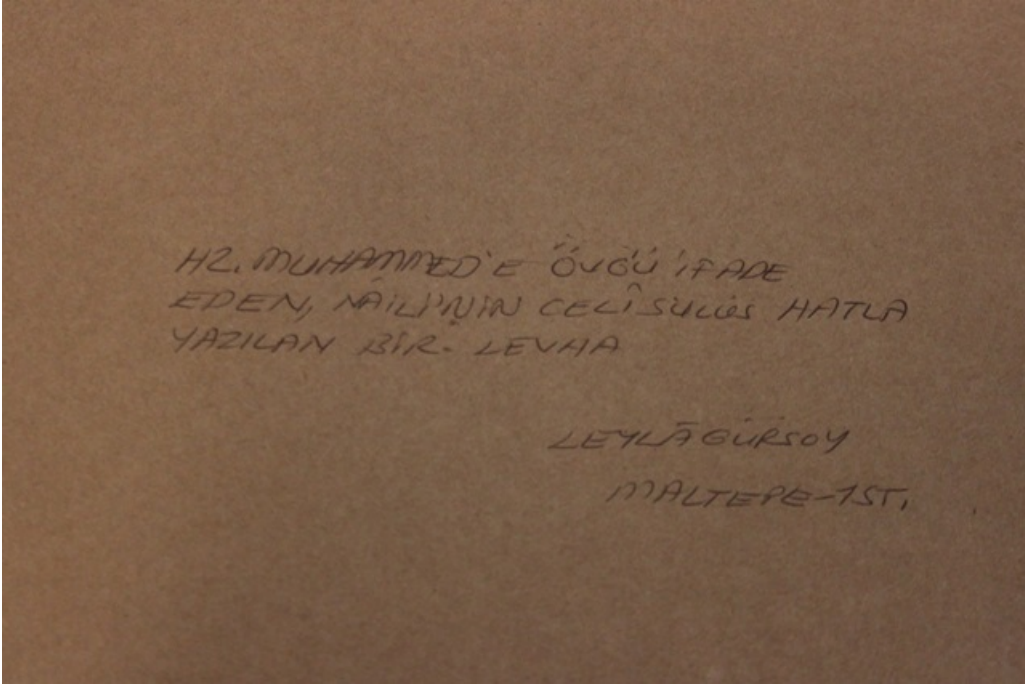 HZ. MUHAMMED'E ÖVGÜ İFADE
EDEN, NÂİLİ'NİN CELÎ SÜLÜS HATLA
YAZILAN BİR LEVHA
LEYLÂ GÜRSOY
MALTEPE-İST.